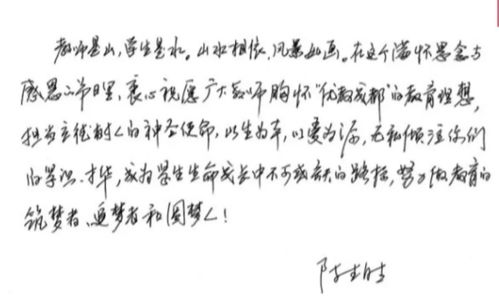 教师是山，学生是水。山水相依，风景如画。在这个满怀思念与
感恩的节日里，衷心祝愿广大教师胸怀“优教成都”的教育理想，
担当立德树人的神圣使命，以生为本，以爱为源，无私倾注你们
的学识、才华，成为学生生命成长中不可或缺的路标，努力做教育的
筑梦者、追梦者和圆梦人！